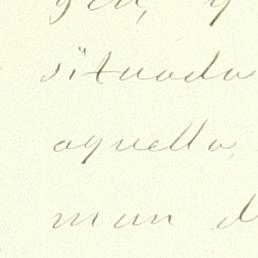 situada
aquella,
mun d